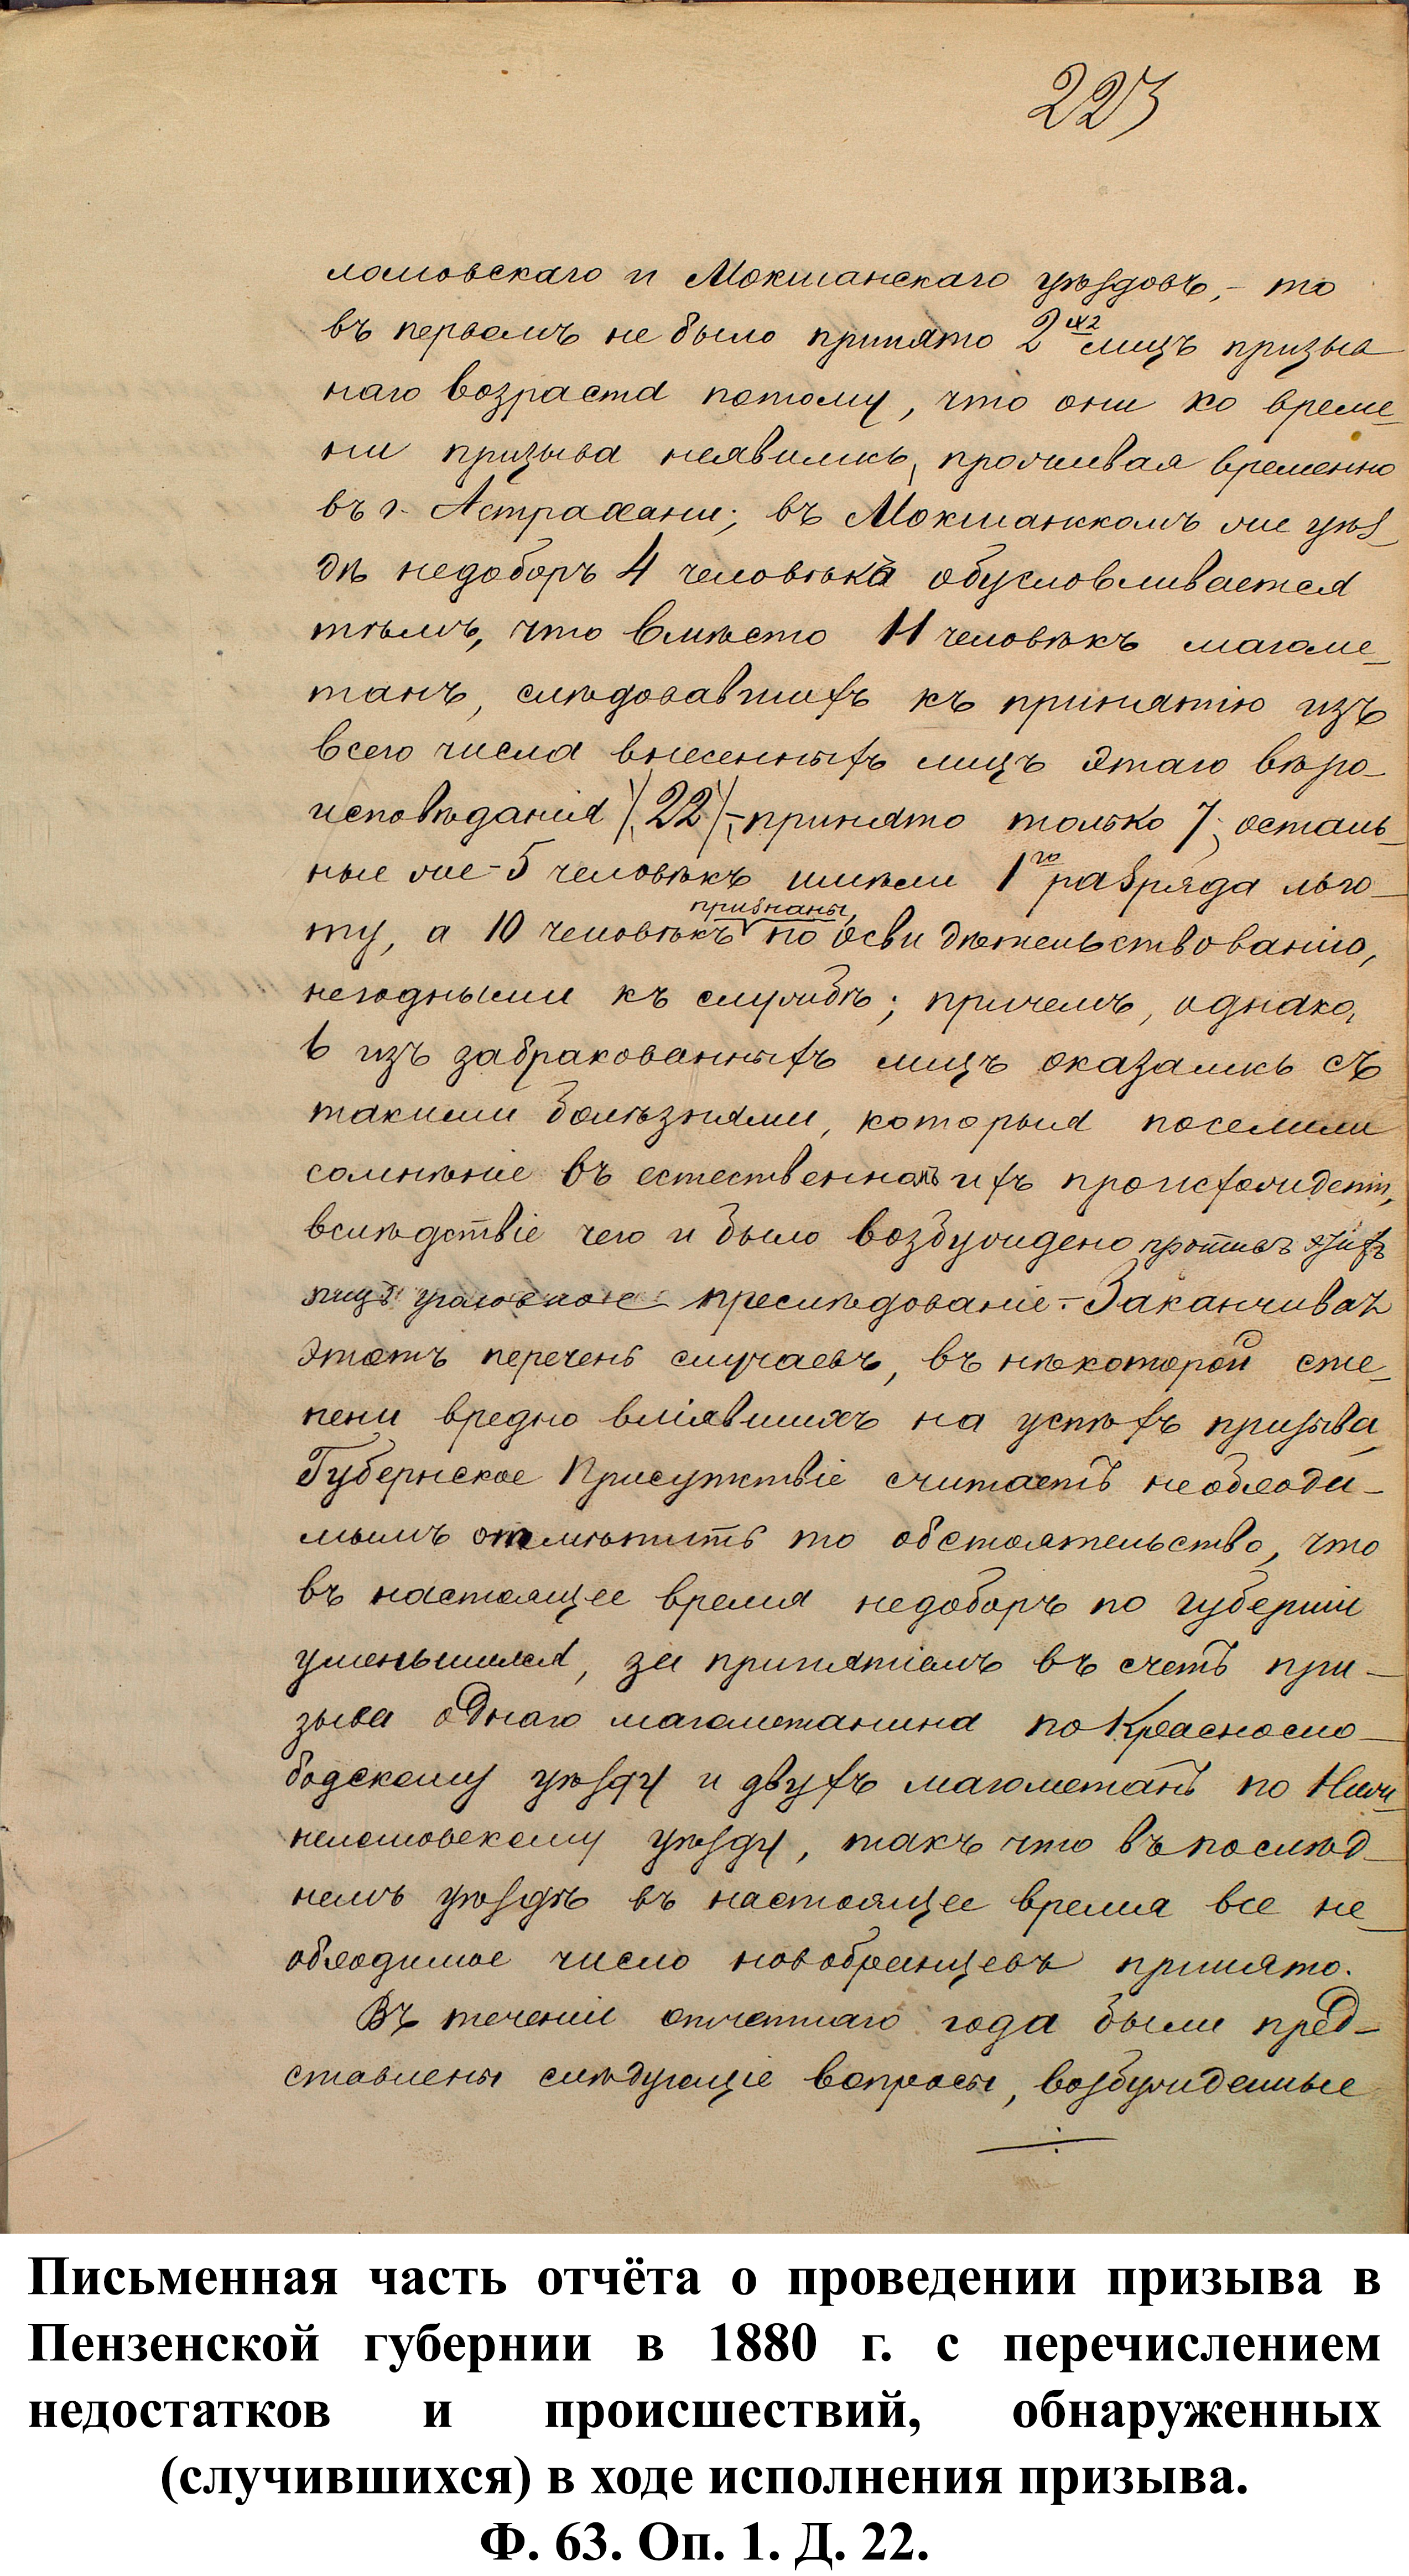 223
ломовскаго и Мокшанскаго уѣздовъ, - то
въ первомъ не было принято 2хъ лицъ призыв
наго возраста потому, что они ко време-
ни призыва неявились, проживая временно
въ г. Астрахани; въ Мокшанскомъ же уѣз-
дѣ недоборъ 4 человѣка обусловливается
тѣмъ, что вмѣсто 11 человѣкъ магоме-
танъ, слѣдовавшихъ къ принятію изъ
всего числа внесенныхъ лицъ этаго вѣро-
исповѣданія (22) - принято только 7, осталь-
ные же - 5 человѣкъ имѣли 1го разряда льго-
признаны,
ту, а 10 человѣкъ по освидѣтельствованію,
негодными къ службѣ; причемъ, однако,
6 изъ забракованныхъ лицъ оказались съ
такими болѣзнями, которыя поселили
сомнѣніе въ естественномъ ихъ происхожденіи,
вслѣдствіе чего и было возбуждено противъ этихъ
лицъ уголовное преслѣдованіе. - Заканчивая
этотъ перечень случаевъ, въ нѣкоторой сте-
пени вредно вліявшихъ на успѣхъ призыва,
Губернское Присутствіе считаетъ необходи-
мымъ отмѣтить то обстоятельство, что
въ настоящее время недоборъ по губерніи
уменьшился, за принятіемъ въ счетъ при-
зыва однаго магометанина по Красносло-
бодскому уѣзду и двухъ магометанъ по Ниж-
неломовскому уѣзду, такъ что въ послѣд-
немъ уѣздѣ въ настоящее время все не-
обходимое число новобранцевъ принято.
Въ теченіи отчетнаго года были пред-
ставлены слѣдующіе вопросы, возбужденные
Письменная часть отчёта о проведении призыва в
Пензенской губернии в 1880 г. с перечислением
недостатков и происшествий, обнаруженных
(случившихся) в ходе исполнения призыва.
Ф. 63. Оп. 1. Д. 22.